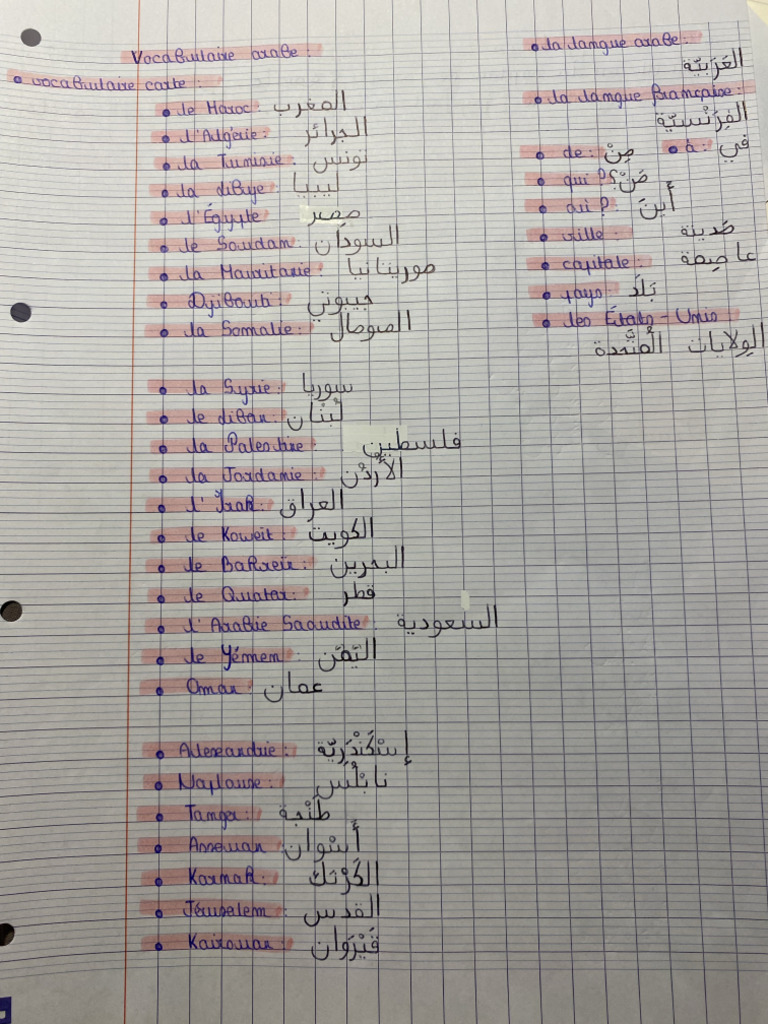 Vocabulaire arabe :
• vocabulaire carte :
• le Maroc : المغرب
• l'Algérie : الجزائر
• la Tunisie : تونس
• la Libye : ليبيا
• l'Égypte مصر
• le Soudan : السودان
• la Mauritanie : موريتانيا
• Djibouti : جيبوتي
• la Somalie : الصومال
• la Syrie : سوريا
• le Liban : لُبْنان
• la Palestine : فلسطين
• la Jordanie : الأُرْدُن
• l'Irak : العراق
• le Koweit : الكويت
• le Bahreïn : البحرين
• le Quatar : قطر
• l'Arabie Saoudite : السعودية
• le Yémen : اليَمَن
• Oman : عمان
• Alexandrie : إسْكَنْدَرِيّة
• Naplouse : نابْلُس
• Tanger : طَنْجة
• Assouan : أَسْوان
• Karnak : الكَرْنَك
• Jérusalem : القدس
• Kairouan : قَيْرَوان
• la langue arabe :
العَرَبيّة
• la langue française :
الفِرَنْسيّة
• de : مِنْ • à : في
• qui ? : مَنْ؟
• où ? : أَينَ
• ville : مَدينة
• capitale : عاصِمة
• pays : بَلَد
• les États-Unis
الوِلايات المُتَّحدة